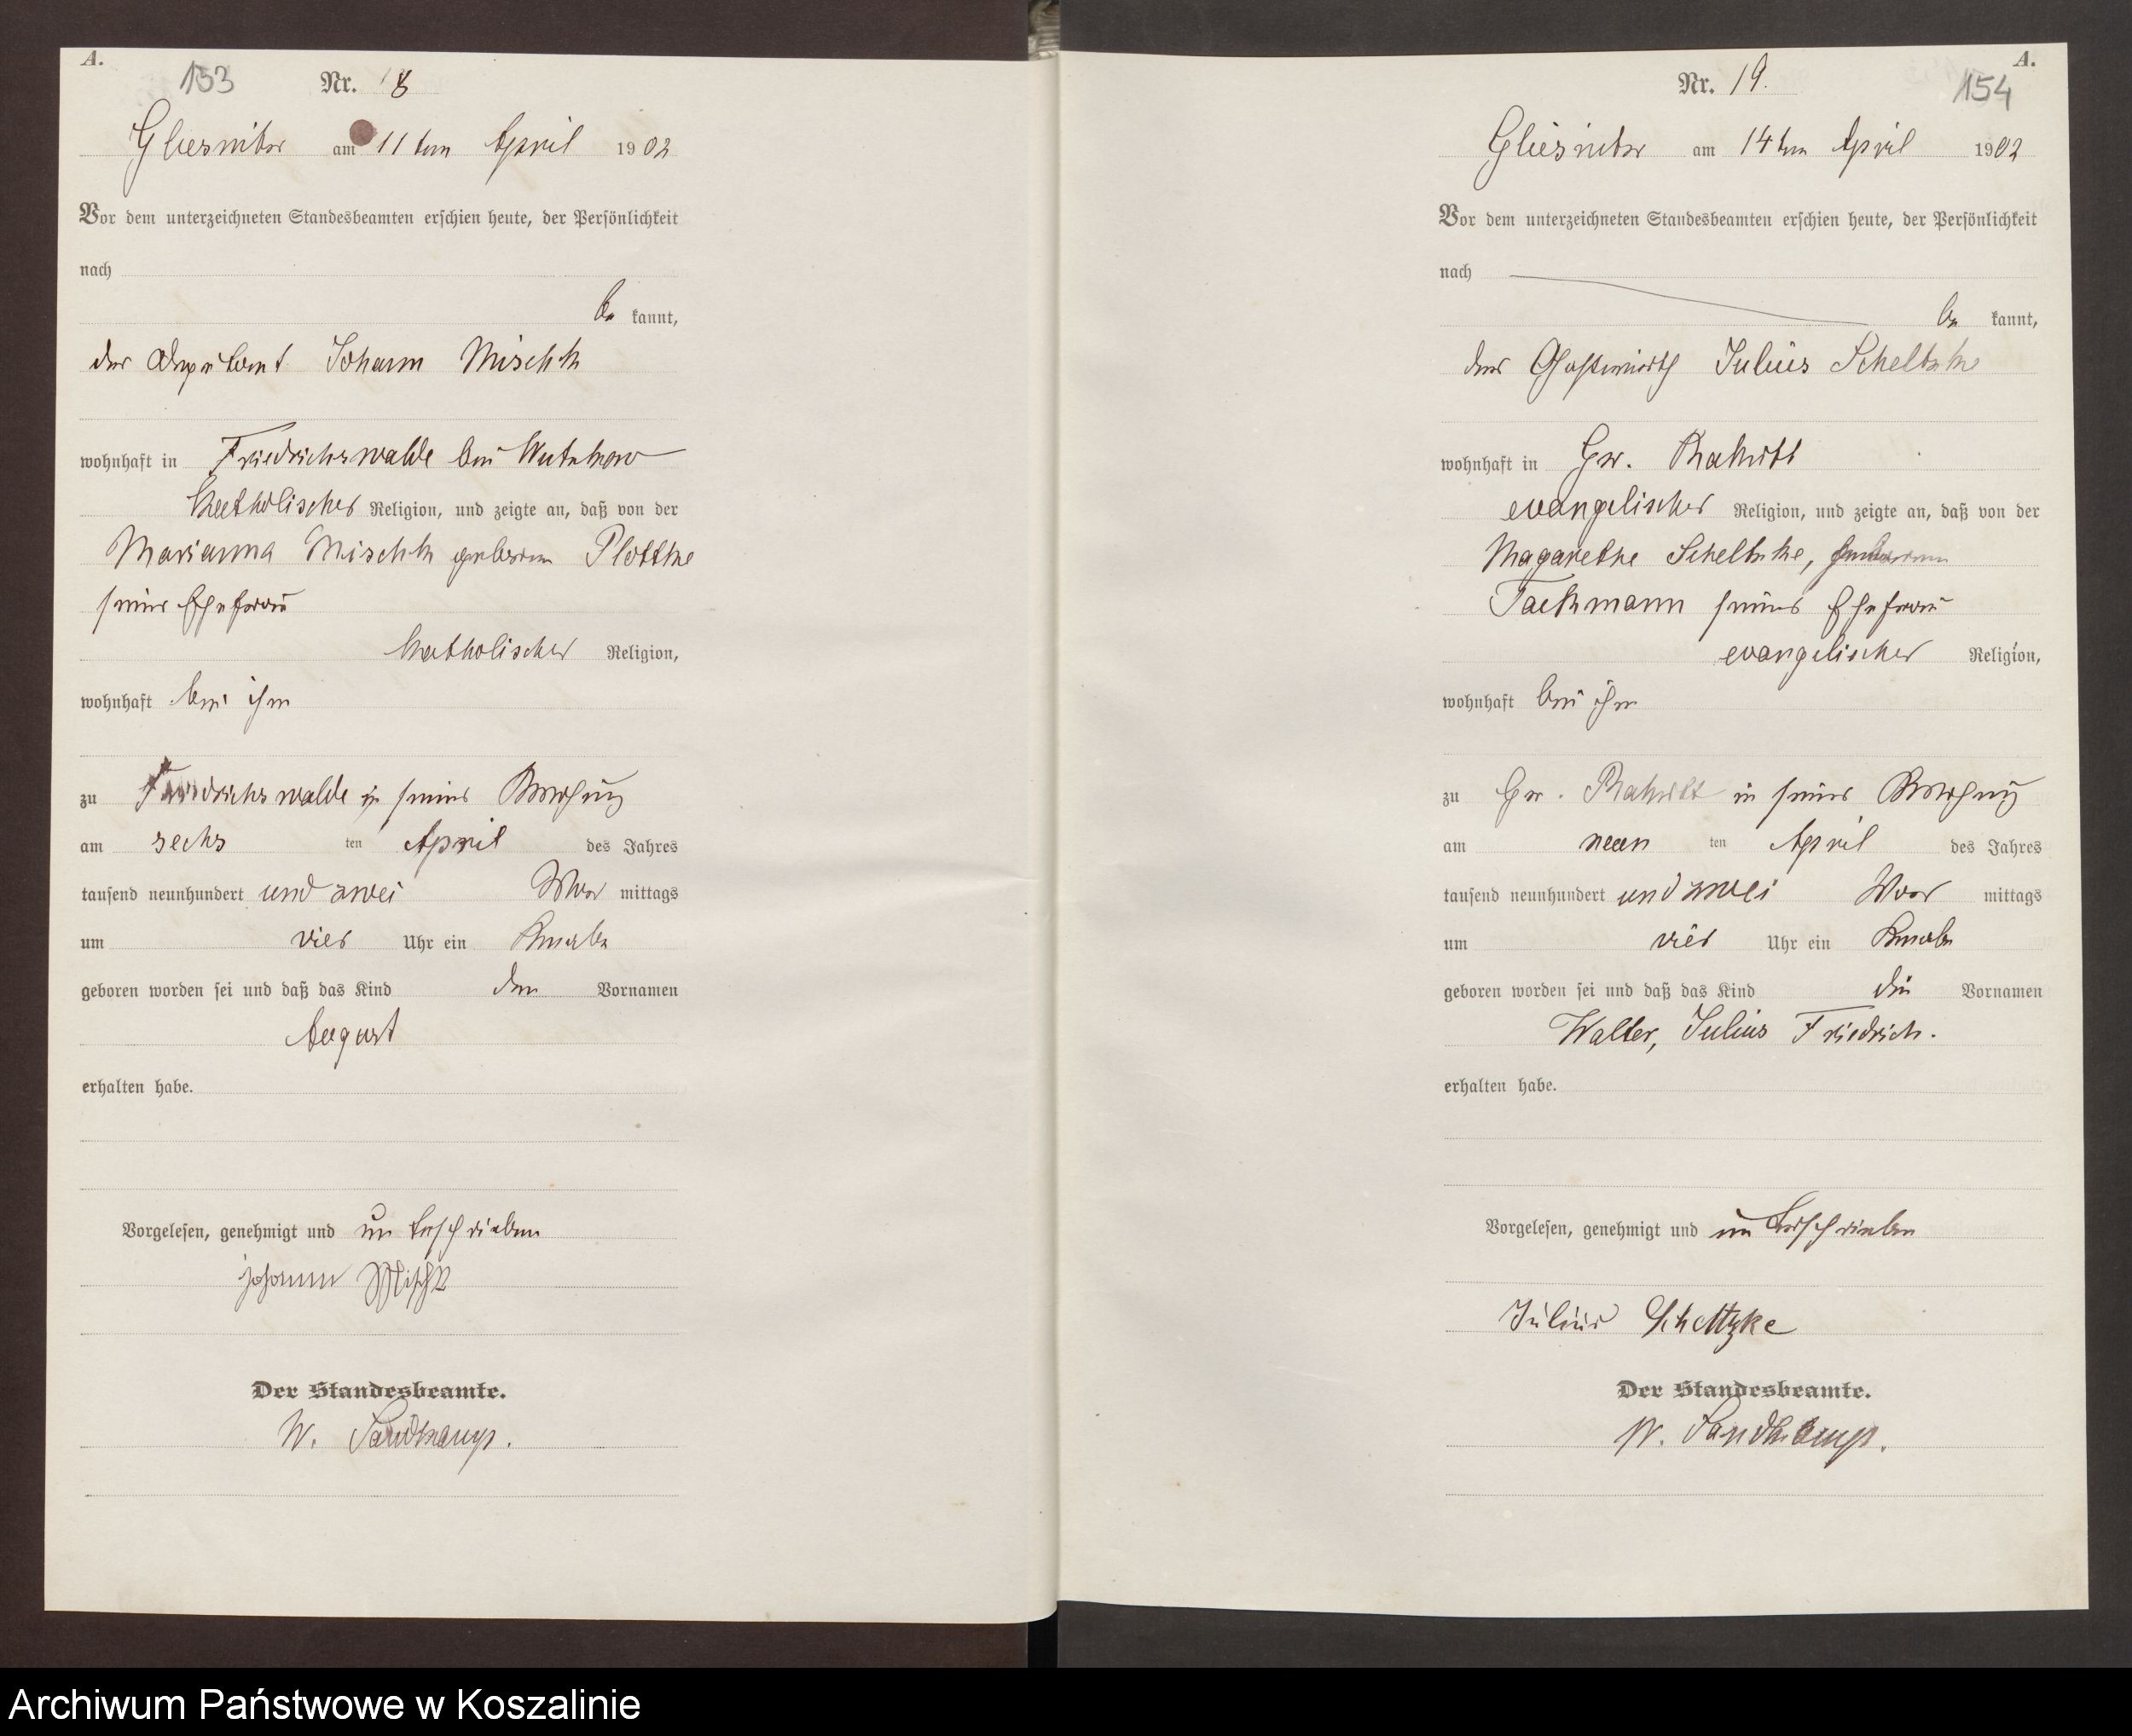 A.
153 Nr. 18
Gliesnitz am 11ten April 1902
Vor dem unterzeichneten Standesbeamten erschien heute, der Persönlichkeit
nach
be kannt,
der Deputant Johann Mischk
wohnhaft in Friedrichswalde bei Wutzkow
katholischer Religion, und zeigte an, daß von der
Marianna Mischk geborene Plottke
seiner Ehefrau
katholischer Religion,
wohnhaft bei ihm
zu Friedrichswalde in seiner Wohnung
am sechs ten April des Jahres
tausend neunhundert und zwei Vor mittags
um vier Uhr ein Knabe
geboren worden sei und daß das Kind den Vornamen
August
erhalten habe.
Vorgelesen, genehmigt und unterschrieben
Johann Mischk
Der Standesbeamte.
W. Sandkamp.
A.
Nr. 19. 154
Gliesnitz am 14ten April 1902
Vor dem unterzeichneten Standesbeamten erschien heute, der Persönlichkeit
nach
be kannt,
der Gastwirth Julius Scheltzke
wohnhaft in Gr. Rakitt
evangelischer Religion, und zeigte an, daß von der
Magarethe Scheltzke, geborene
Tackmann seiner Ehefrau
evangelischer Religion,
wohnhaft bei ihm
zu Gr. Rakitt in seiner Wohnung
am neun ten April des Jahres
tausend neunhundert und zwei Vor mittags
um vier Uhr ein Knabe
geboren worden sei und daß das Kind die Vornamen
Walter, Julius Friedrich.
erhalten habe.
Vorgelesen, genehmigt und unterschrieben
Julius Scheltzke
Der Standesbeamte.
W. Sandkamp.
Archiwum Państwowe w Koszalinie